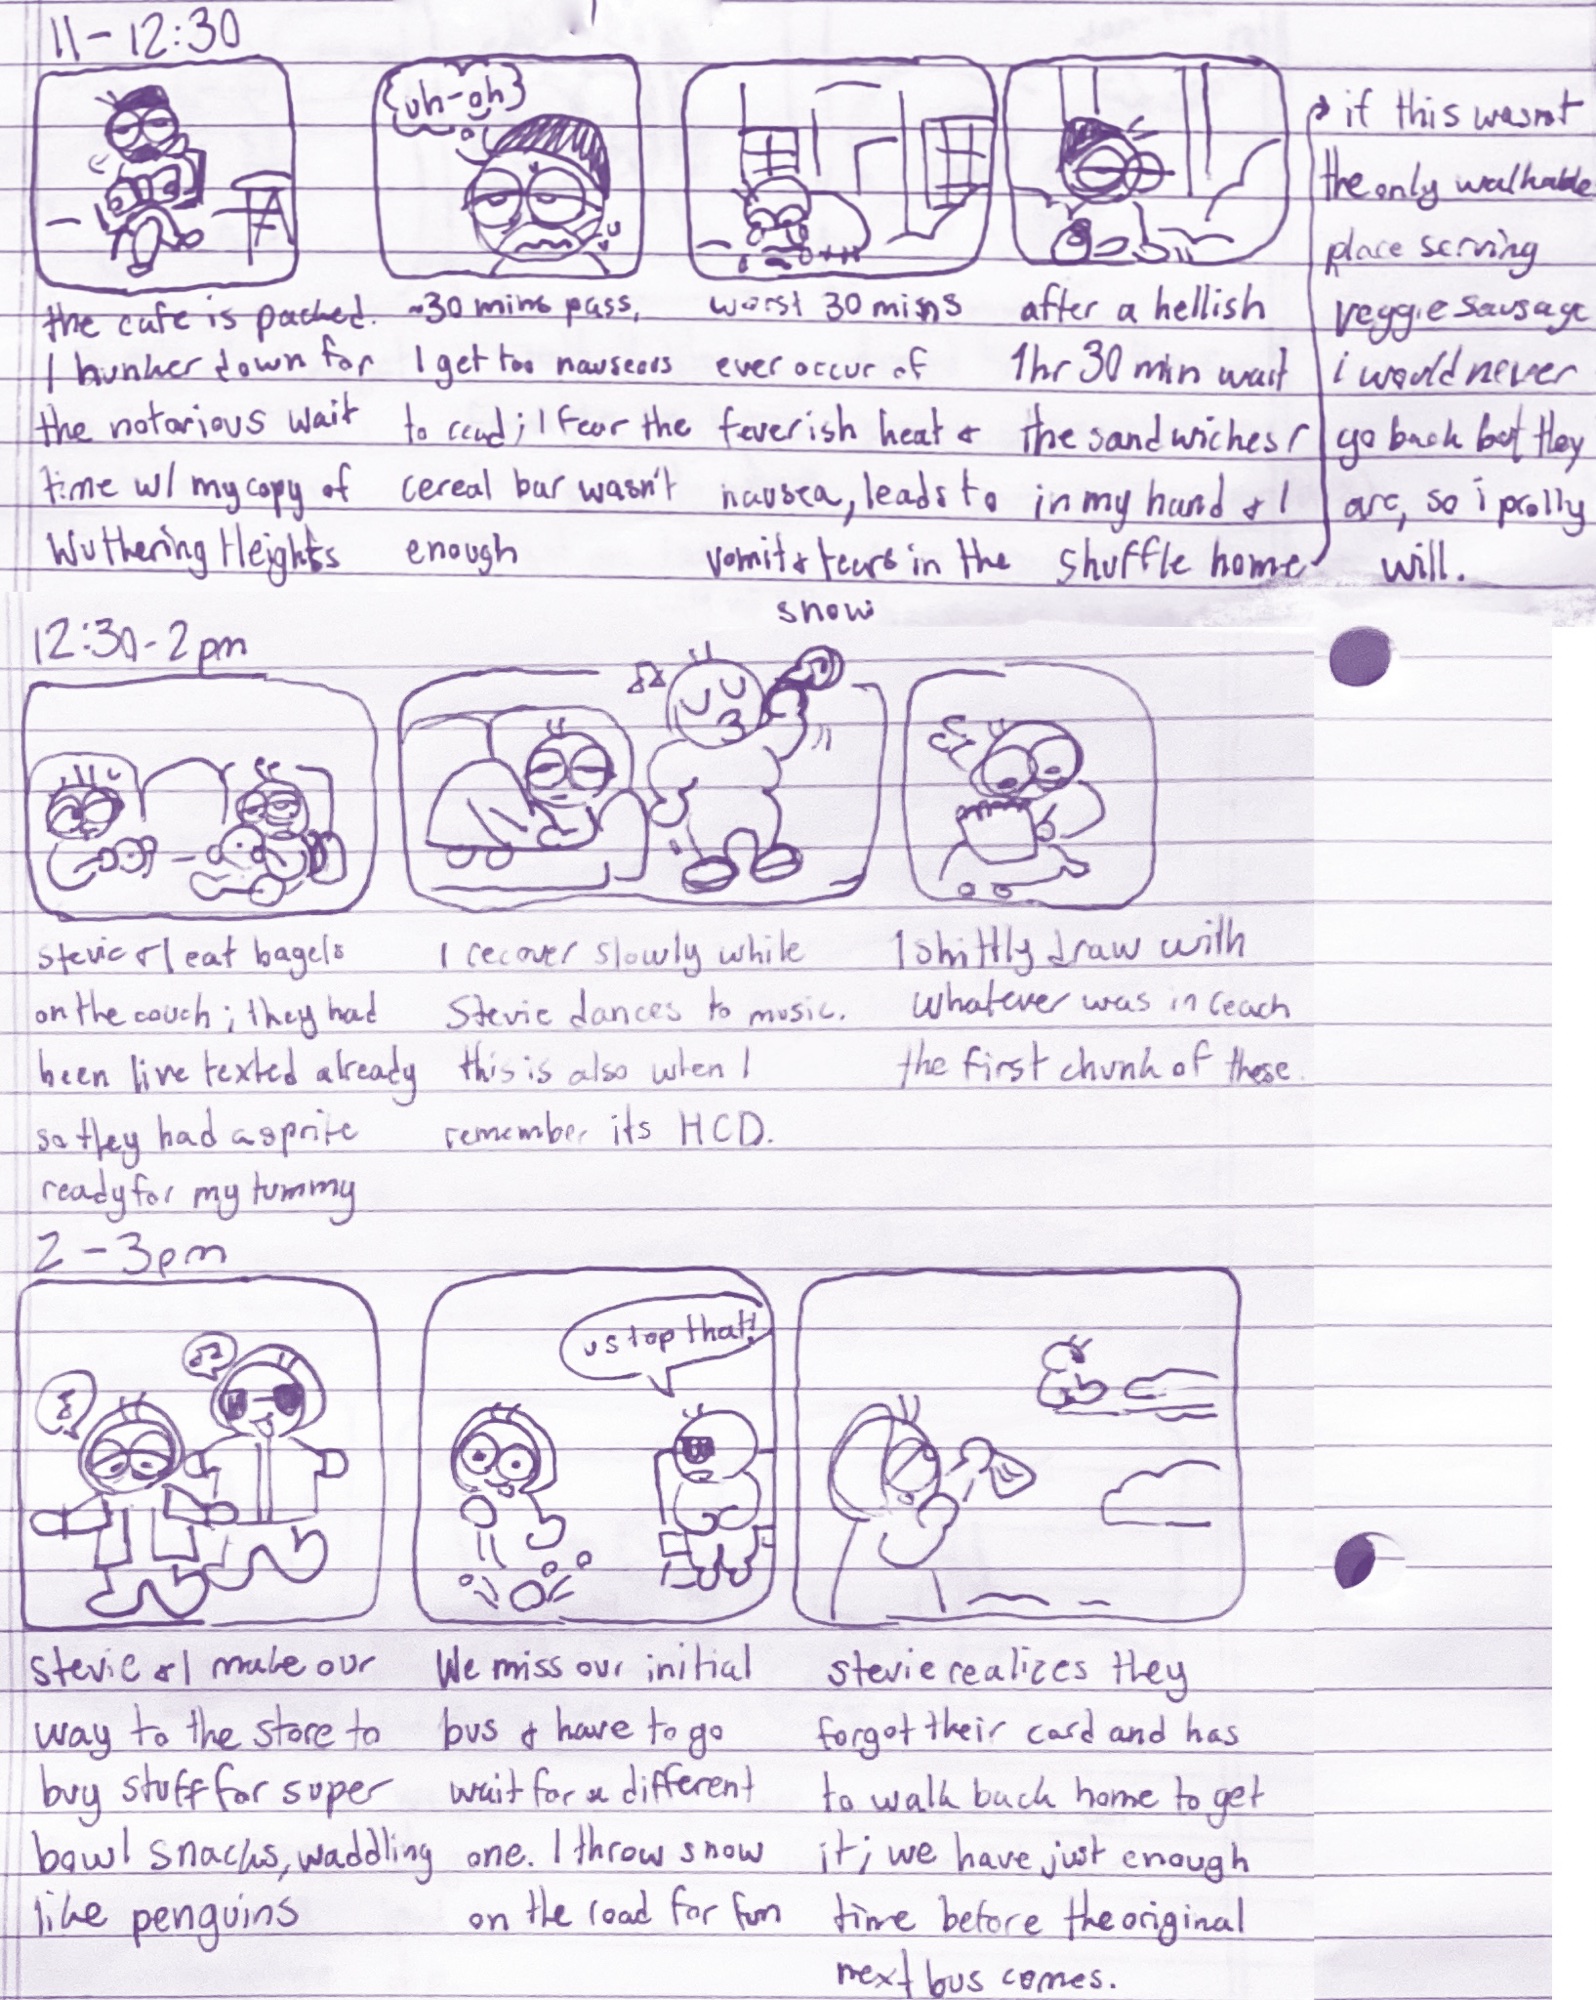 11-12:30
{uh-oh}
the cafe is packed.
I hunker down for
the notorious wait
time w/ my copy of
Wuthering Heights
~30 mins pass,
I get too nauseous
to read; I fear the
cereal bar wasn't
enough
worst 30 mins
ever occur of
feverish heat &
nausea, leads to
vomit & tears in the
snow
after a hellish
1hr 30 min wait
the sandwiches r
in my hand & I
shuffle home
if this wasnt
the only walkable
place serving
veggie sausage
i would never
go back but they
are, so i prolly
will.
12:30-2pm
stevie & I eat bagels
on the couch; they had
been live texted already
so they had a sprite
ready for my tummy
I recover slowly while
Stevie dances to music.
this is also when I
remember its HCD.
I shittly draw with
whatever was in reach
the first chunk of these.
2-3pm
stevie & I make our
way to the store to
buy stuff for super
bowl snacks, waddling
like penguins
stop that!
We miss our initial
bus & have to go
wait for a different
one. I throw snow
on the road for fun
stevie realizes they
forgot their card and has
to walk back home to get
it; we have just enough
time before the original
next bus comes.